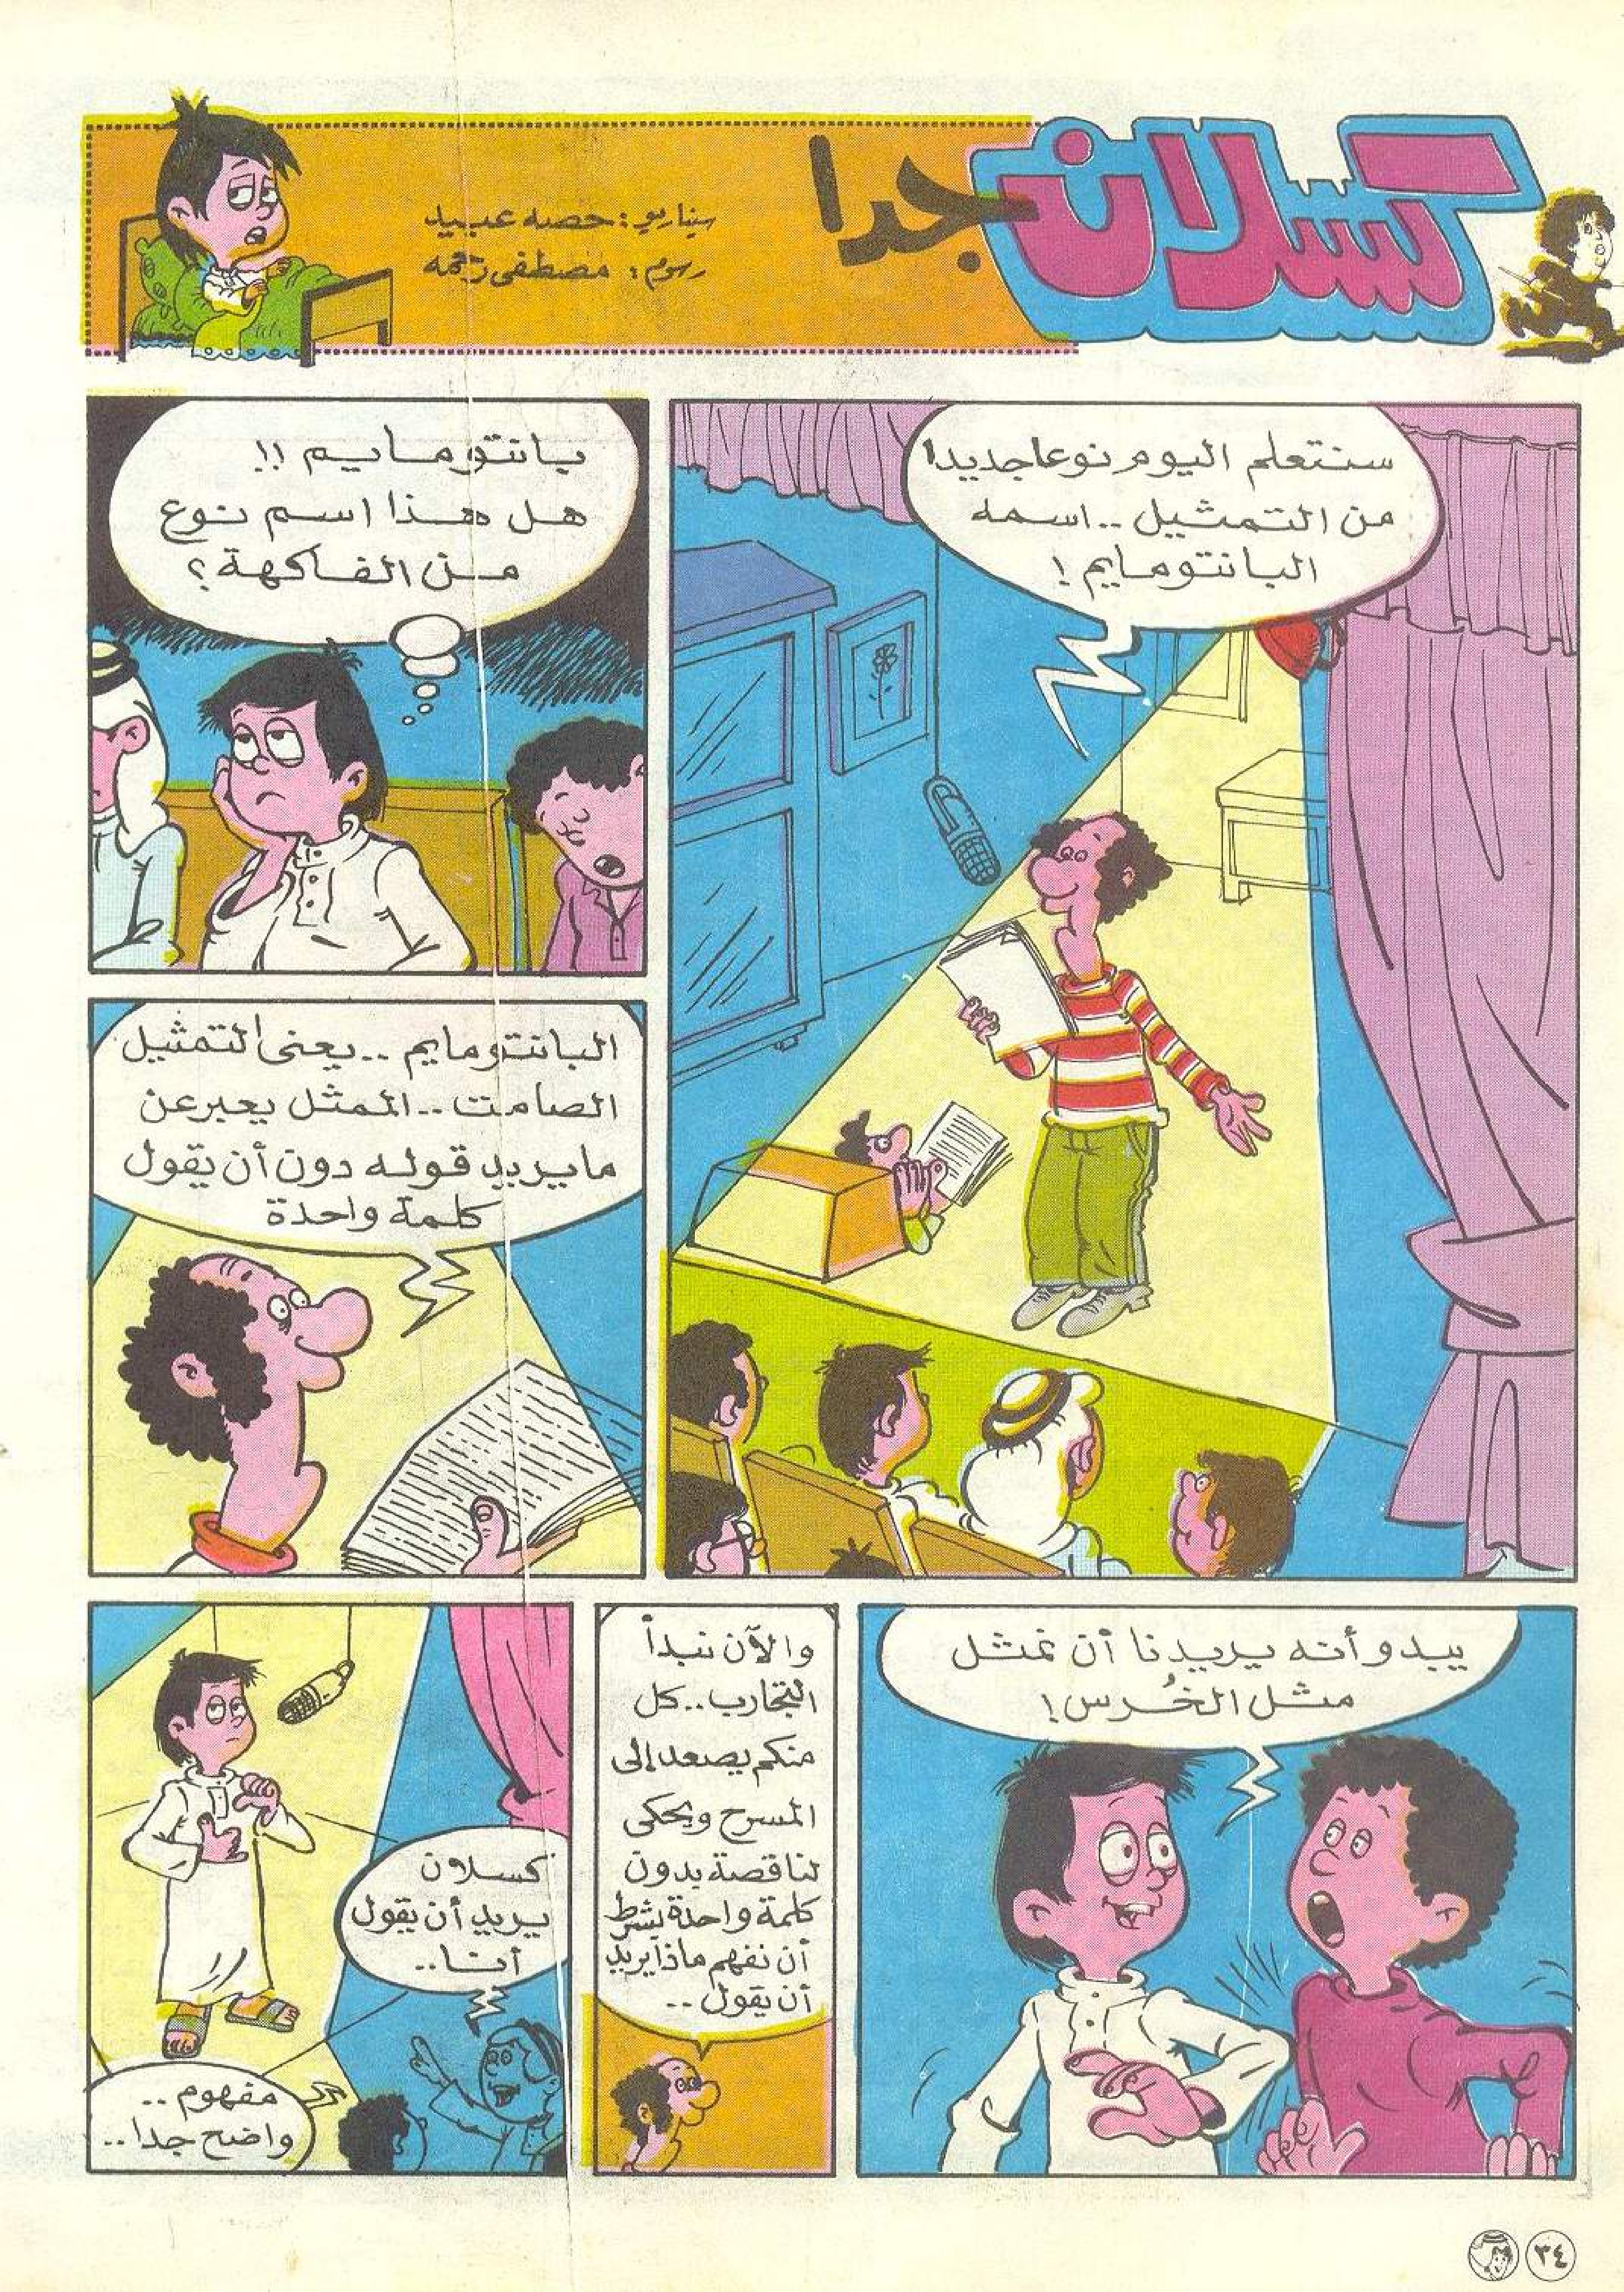 كسلان جدا
سيناريو: حصه عبيد
رسوم: مصطفى رحمه
سنتعلم اليوم نوعا جديدا
من التمثيل .. اسمه
البانتومايم !
بانتومايم !!
هل هذا اسم نوع
من الفاكهة ؟
البانتومايم .. يعنى التمثيل
الصامت .. الممثل يعبر عن
مايريد قوله دون أن يقول
كلمة واحدة
يبدو أنه يريدنا أن نمثل
مثل الخُرس !
والآن نبدأ
التجارب .. كل
منكم يصعد إلى
المسرح ويحكى
لنا قصة بدون
كلمة واحدة بشرط
أن نفهم ماذا يريد
أن يقول ..
كسلان
يريد أن يقول
أنا ..
مفهوم ..
واضح جدا ..
٣٤